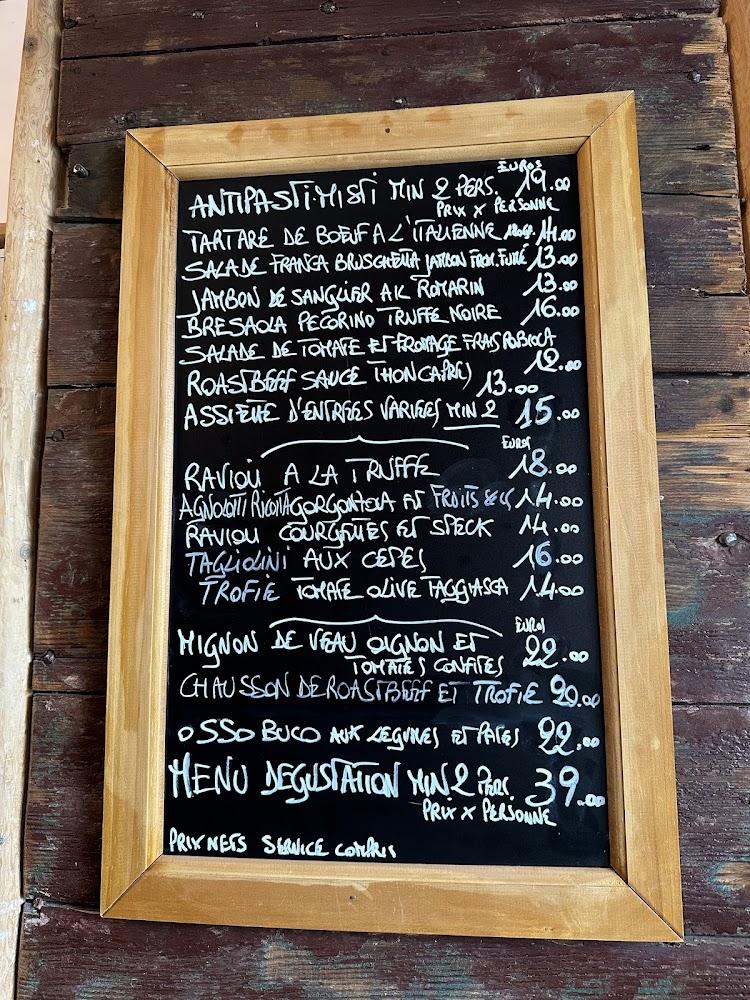 EUROS
ANTIPASTI MISTI MIN 2 PERS. 19.00
PRIX X PERSONNE
TARTARE DE BOEUF A L'ITALIENNE 180GR. 14.00
SALADE FRANCA BRUSCHETTA JAMBON FROM. FUMÉ 13.00
JAMBON DE SANGLIER AIL ROMARIN 13.00
BRESAOLA PECORINO TRUFFE NOIRE 16.00
SALADE DE TOMATE ET FROMAGE FRAIS
12.00
ROASTBEEF SAUCE THON CAPRES 13.00
ASSIETTE D'ENTREES VARIEES MIN 2 15.00
EUROS
RAVIOLI A LA TRUFFE 18.00
AGNOLOTTI RICOTTA GORGONZOLA ET FRUITS SECS 14.00
RAVIOLI COURGETTES ET SPECK 14.00
TAGLIOLINI AUX CEPES 16.00
TROFIE TOMATE OLIVE TAGGIASCA 14.00
EUROS
MIGNON DE VEAU OIGNON ET 22.00
TOMATES CONFITES
CHAUSSON DE ROASTBEEF ET TROFIE 20.00
OSSO BUCO AUX LEGUMES ET PATES 22.00
MENU DEGUSTATION MIN 2 PERS. 39.00
PRIX X PERSONNE
PRIX NETS SERVICE COMPRIS